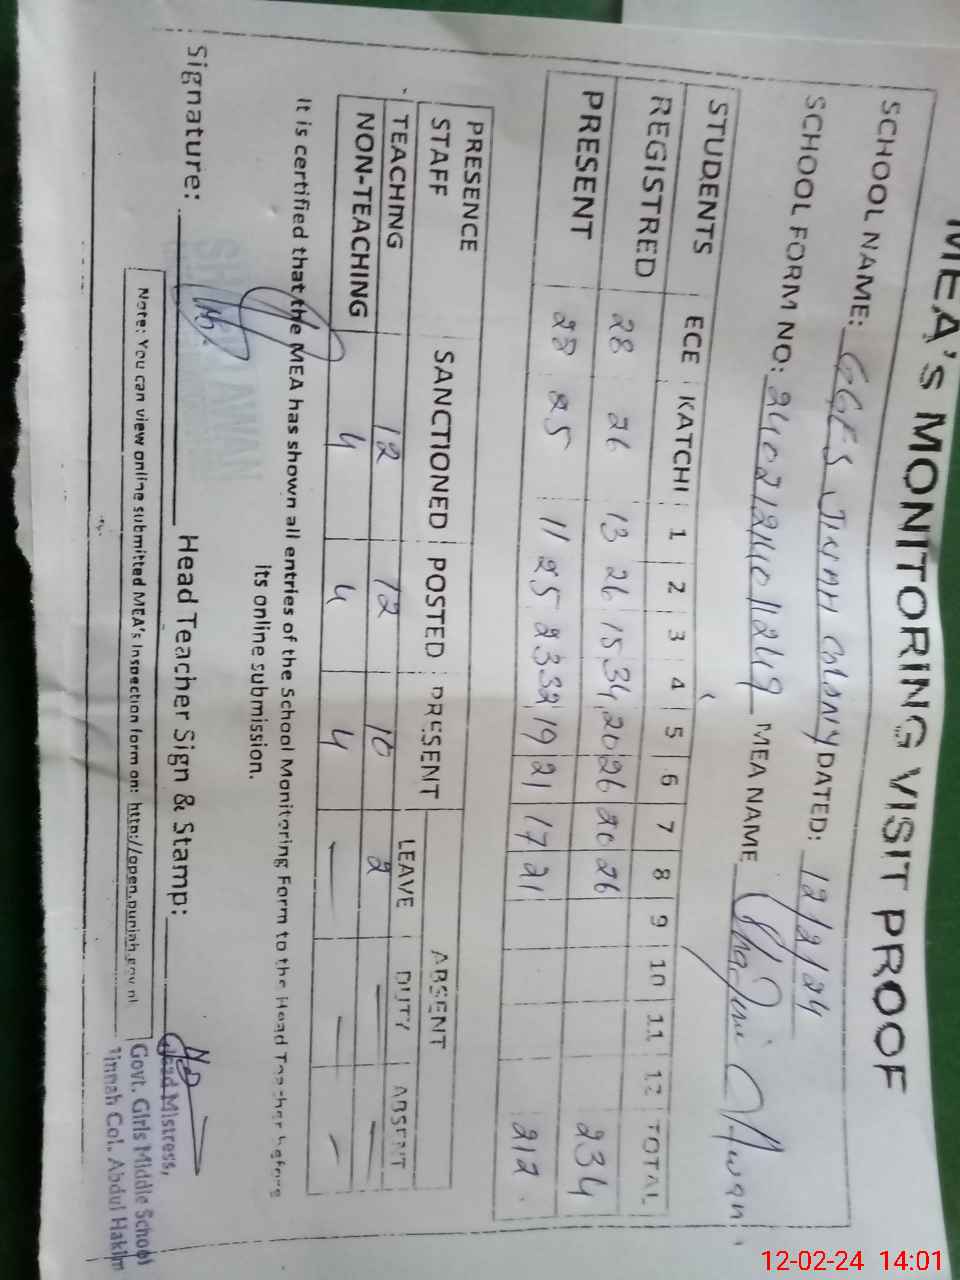 MEA'S MONITORING VISIT PROOF
SCHOOL NAME: GGES JINNAH COLONY DATED: 12/2/24
SCHOOL FORM NO: MEA NAME Awan
STUDENTS ECE KATCHI 1 2 3 4 5 6 7 8 9 10 11 12 TOTAL
REGISTRED 28 26 13 26 15 34 20 26 20 26 234
PRESENT 28 25 11 25 23 32 19 21 17 21 212
PRESENCE ABSENT
STAFF SANCTIONED POSTED PRESENT LEAVE DUTY ABSENT
TEACHING 12 12 10 2 — —
NON-TEACHING 4 4 4 — — —
It is certified that the MEA has shown all entries of the School Monitoring Form to the Head Teacher before
its online submission.
Signature: Head Teacher Sign & Stamp:
AWAN
Head Mistress,
Govt. Girls Middle School
Jinnah Col. Abdul Hakim
Note: You can view online submitted MEA's Inspection form on: http://open.punjab.gov.
12-02-24 14:01